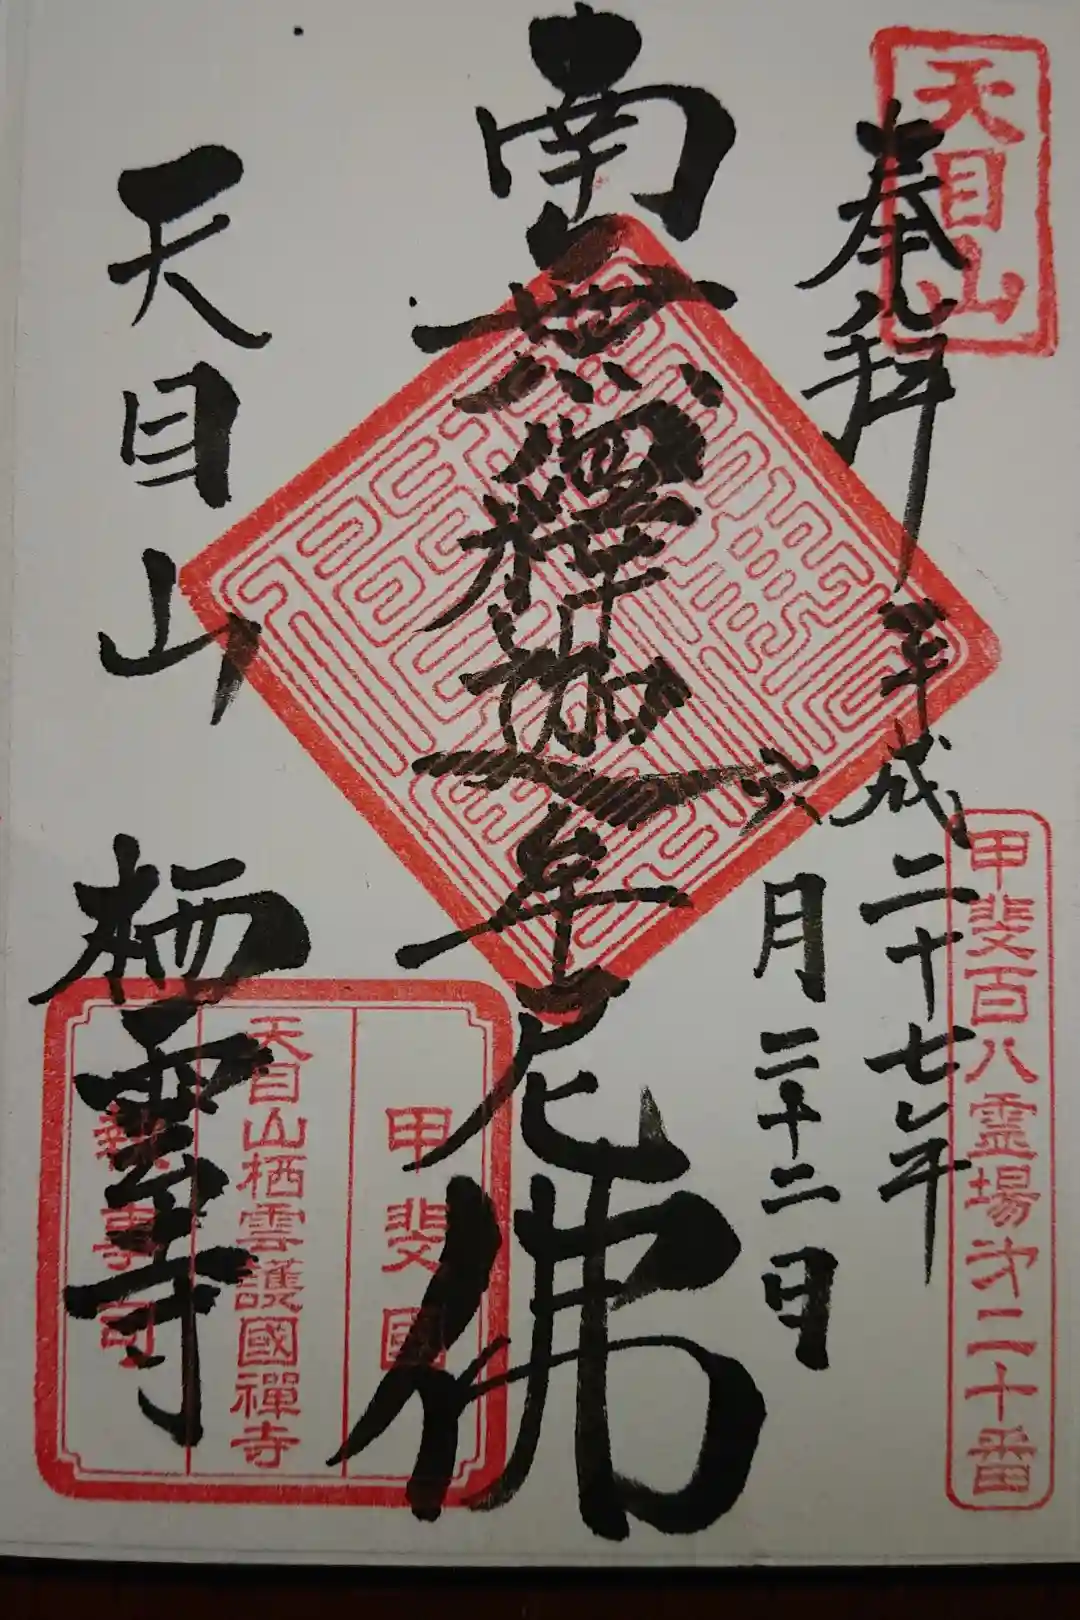 天目山
奉拝
平成二十七年
六月二十二日
甲斐百八霊場㐧二十番
南無釋迦牟尼佛
天目山
栖雲寺
甲斐國
天目山栖雲護國禪寺
執事司